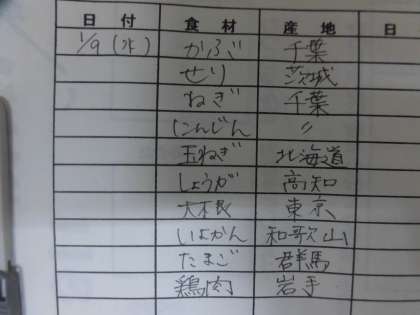 日付 食材 産地 日
1/9(水) かぶ 千葉
せり 茨城
ねぎ 千葉
にんじん 〃
玉ねぎ 北海道
しょうが 高知
大根 東京
いよかん 和歌山
たまご 群馬
鶏肉 岩手